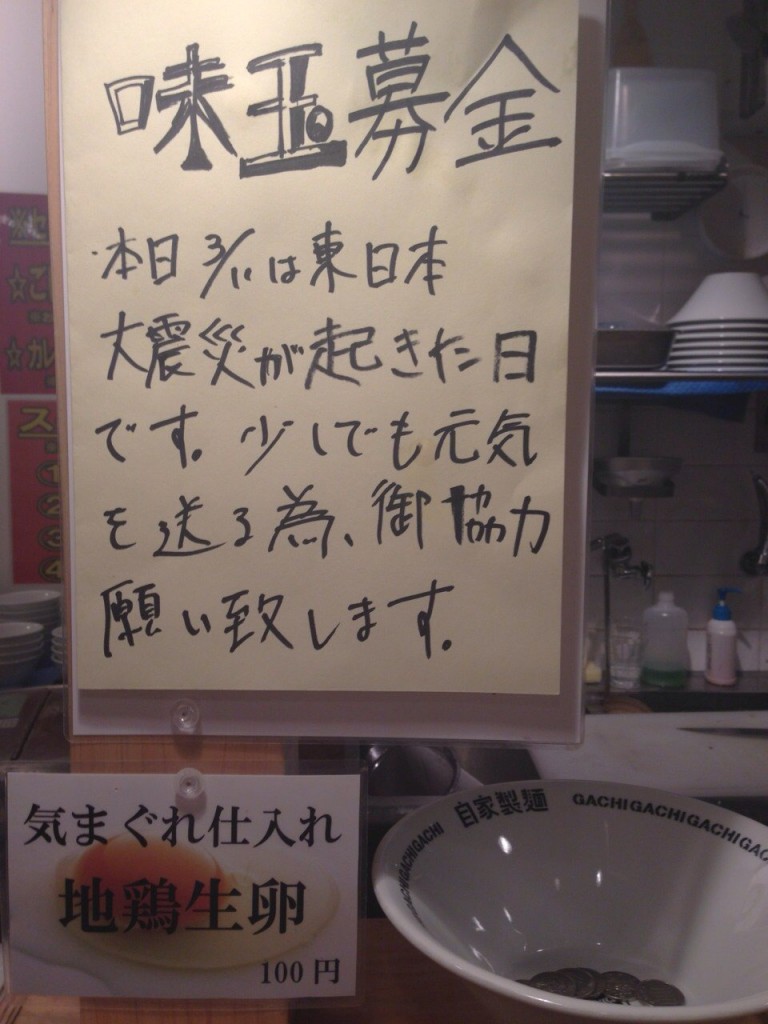 味玉募金
本日3/11は東日本
大震災が起きた日
です。少しでも元気
を送る為、御協力
願い致します。
気まぐれ仕入れ
地鶏生卵
100円
GACHIGACHI 自家製麺 GACHIGACHIGACHIGAC
ス
①
②
③
④